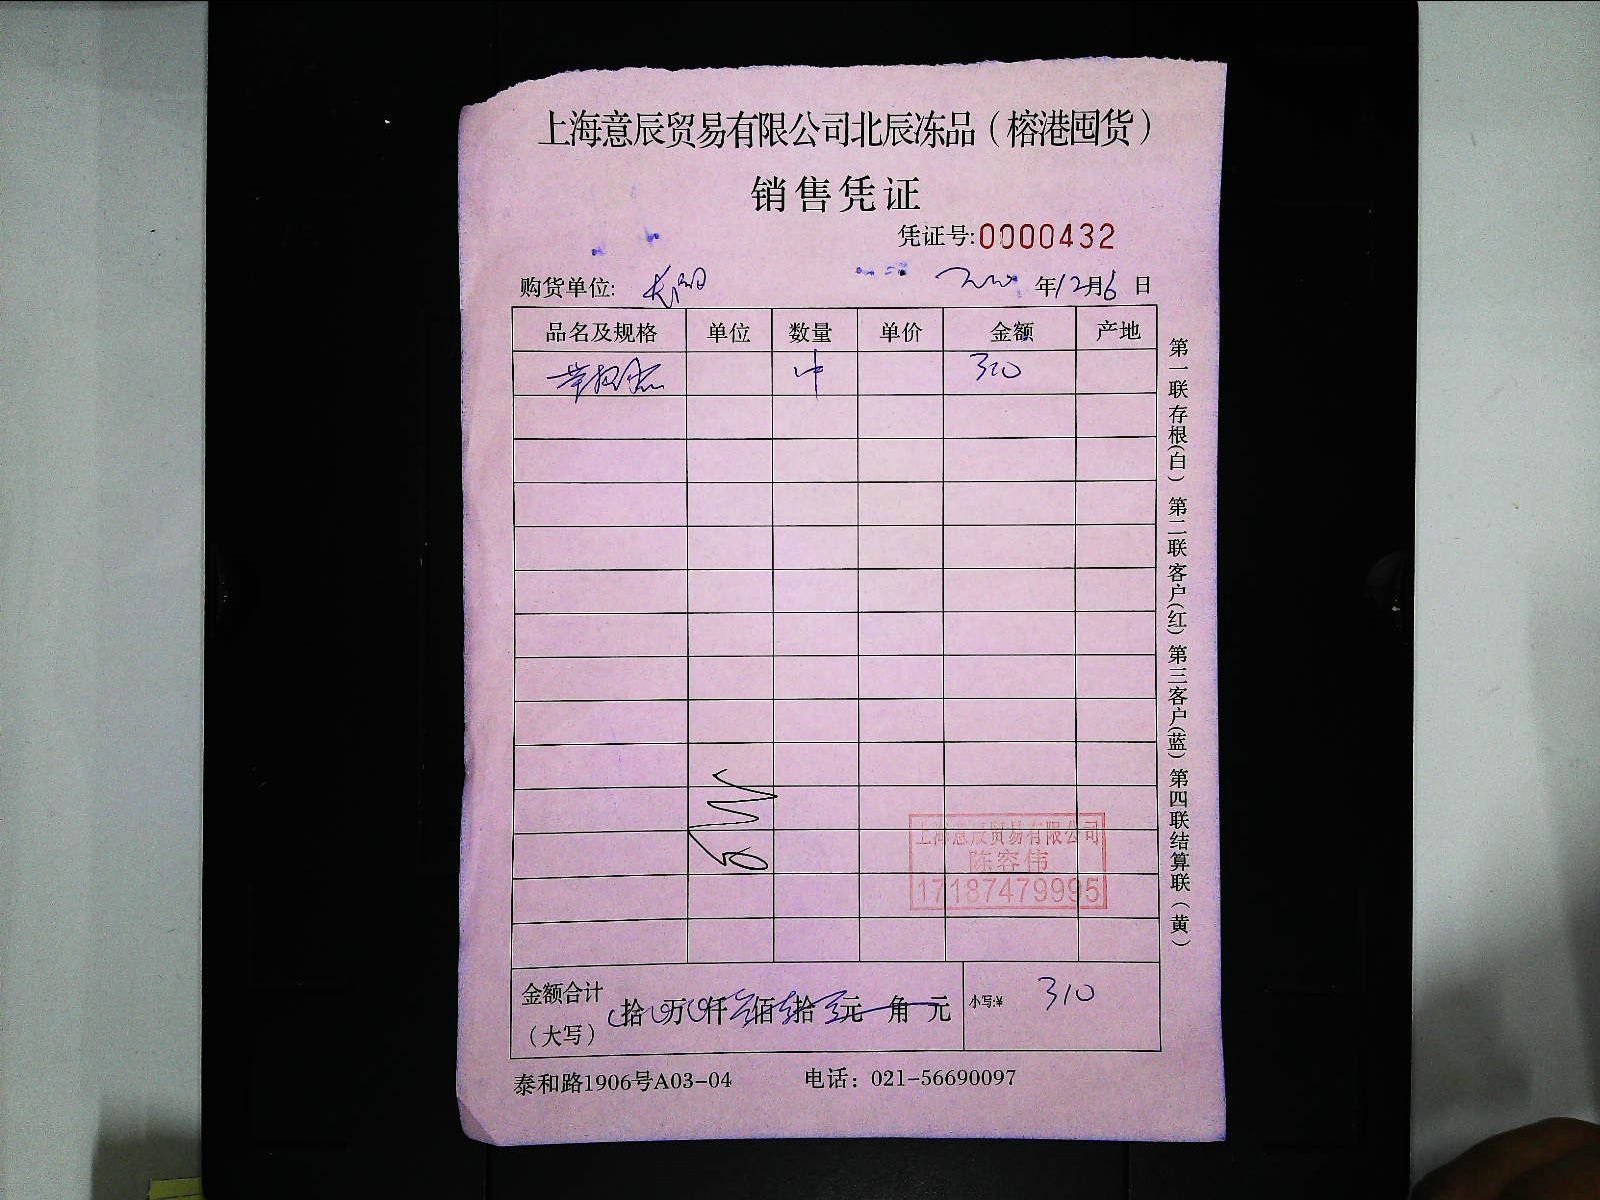 上海意辰贸易有限公司北辰冻品（榕港囤货）
销售凭证
凭证号:0000432
购货单位: 年12月6日
品名及规格 单位 数量 单价 金额 产地
310
上海意辰贸易有限公司
陈容伟
17187479995
金额合计
（大写） 拾万仟佰拾元角元 小写:¥ 310
泰和路1906号A03-04 电话：021-56690097
第一联存根(白) 第二联客户(红) 第三客户(蓝) 第四联结算联（黄）